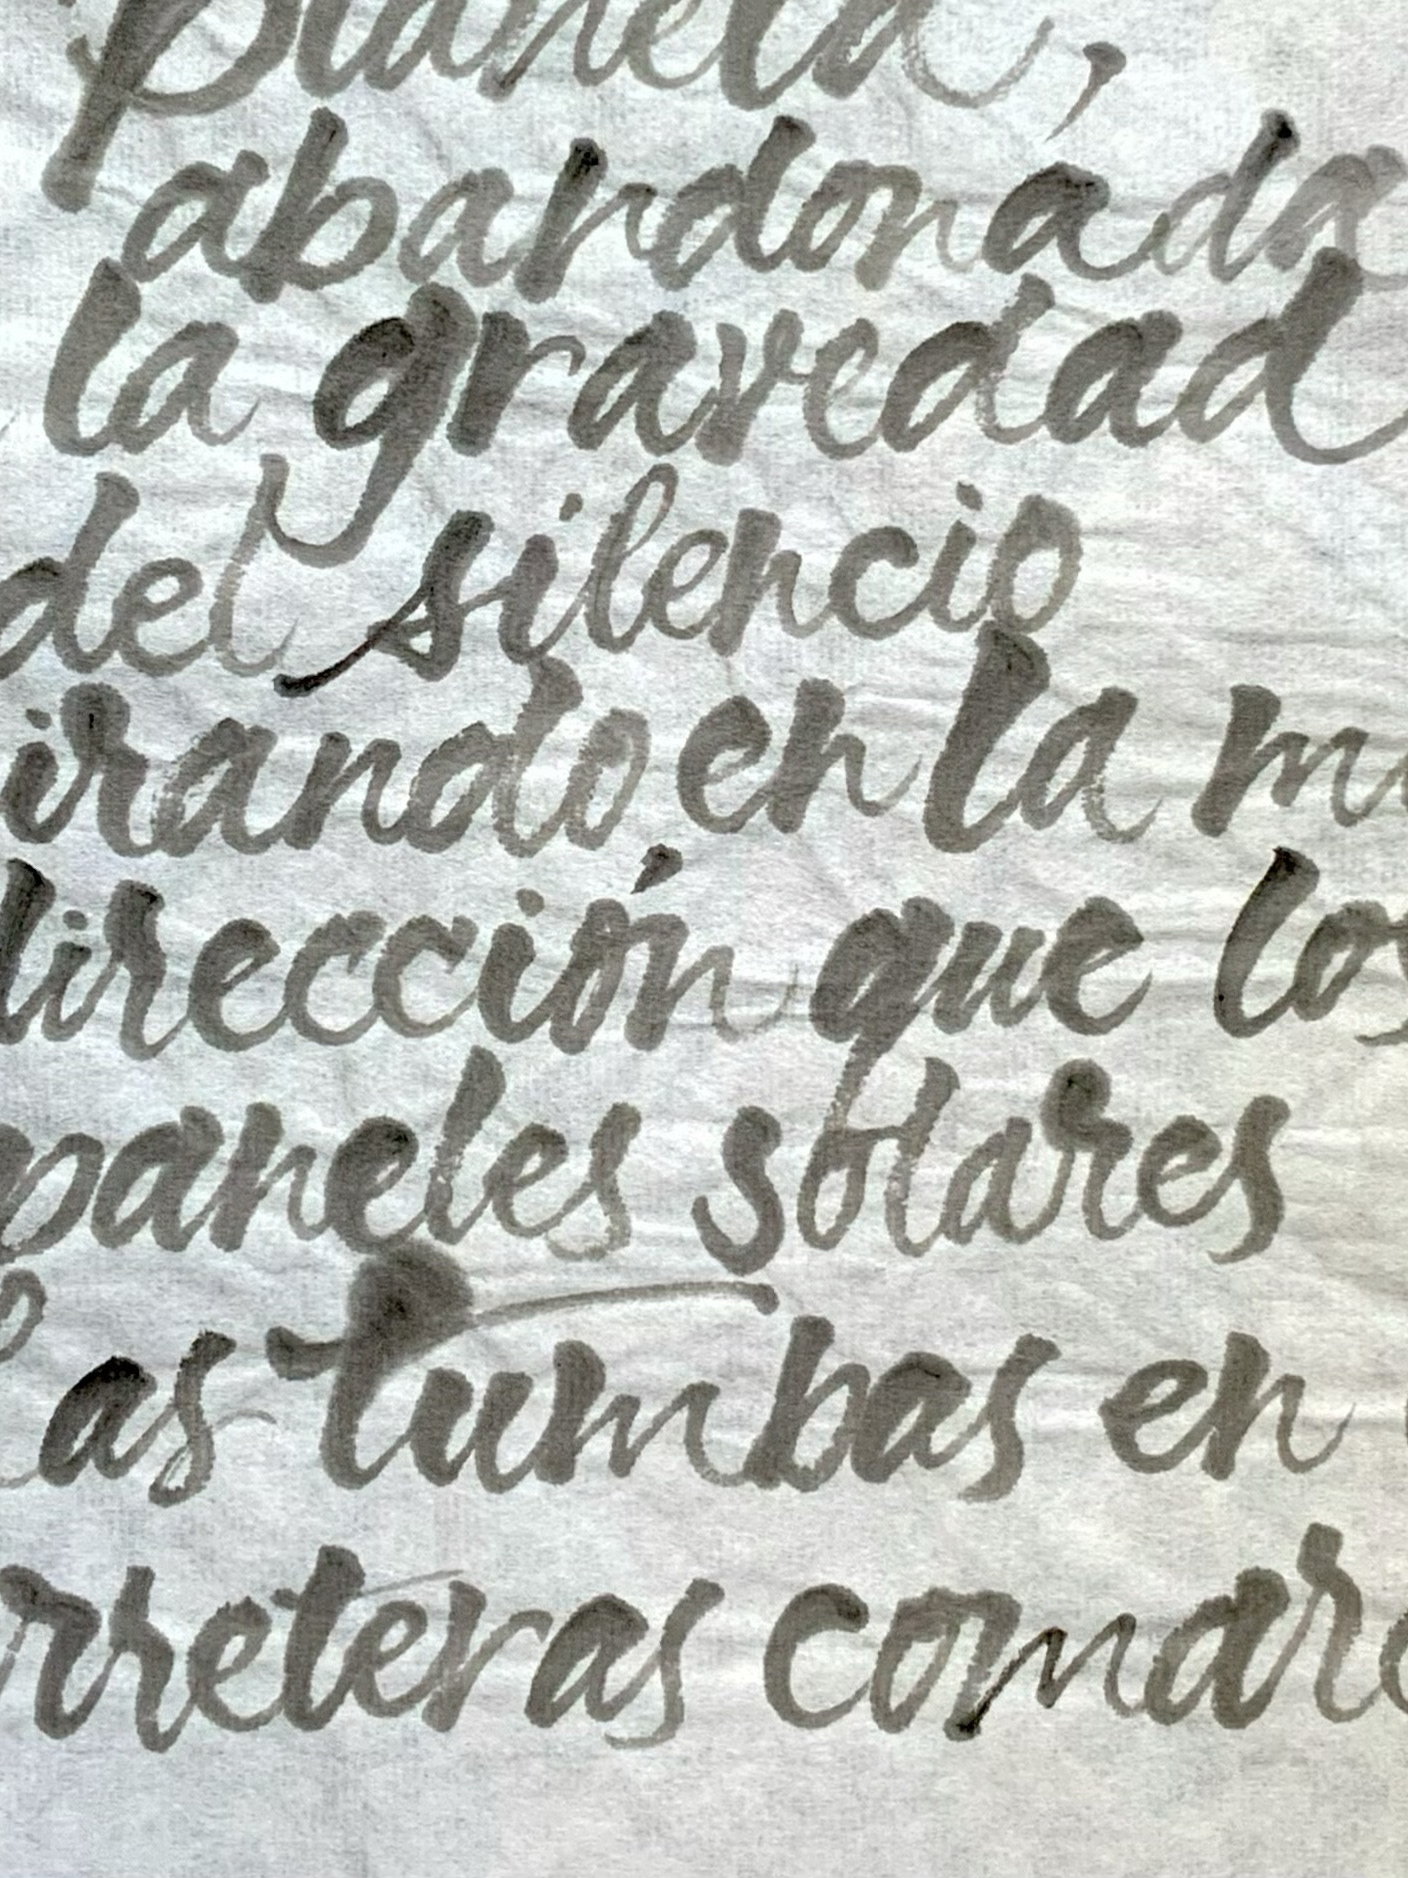 planeta,
abandonada
la gravedad
del silencio
irando en la m
dirección que los
paneles solares
as tumbas en
rreteras comarc